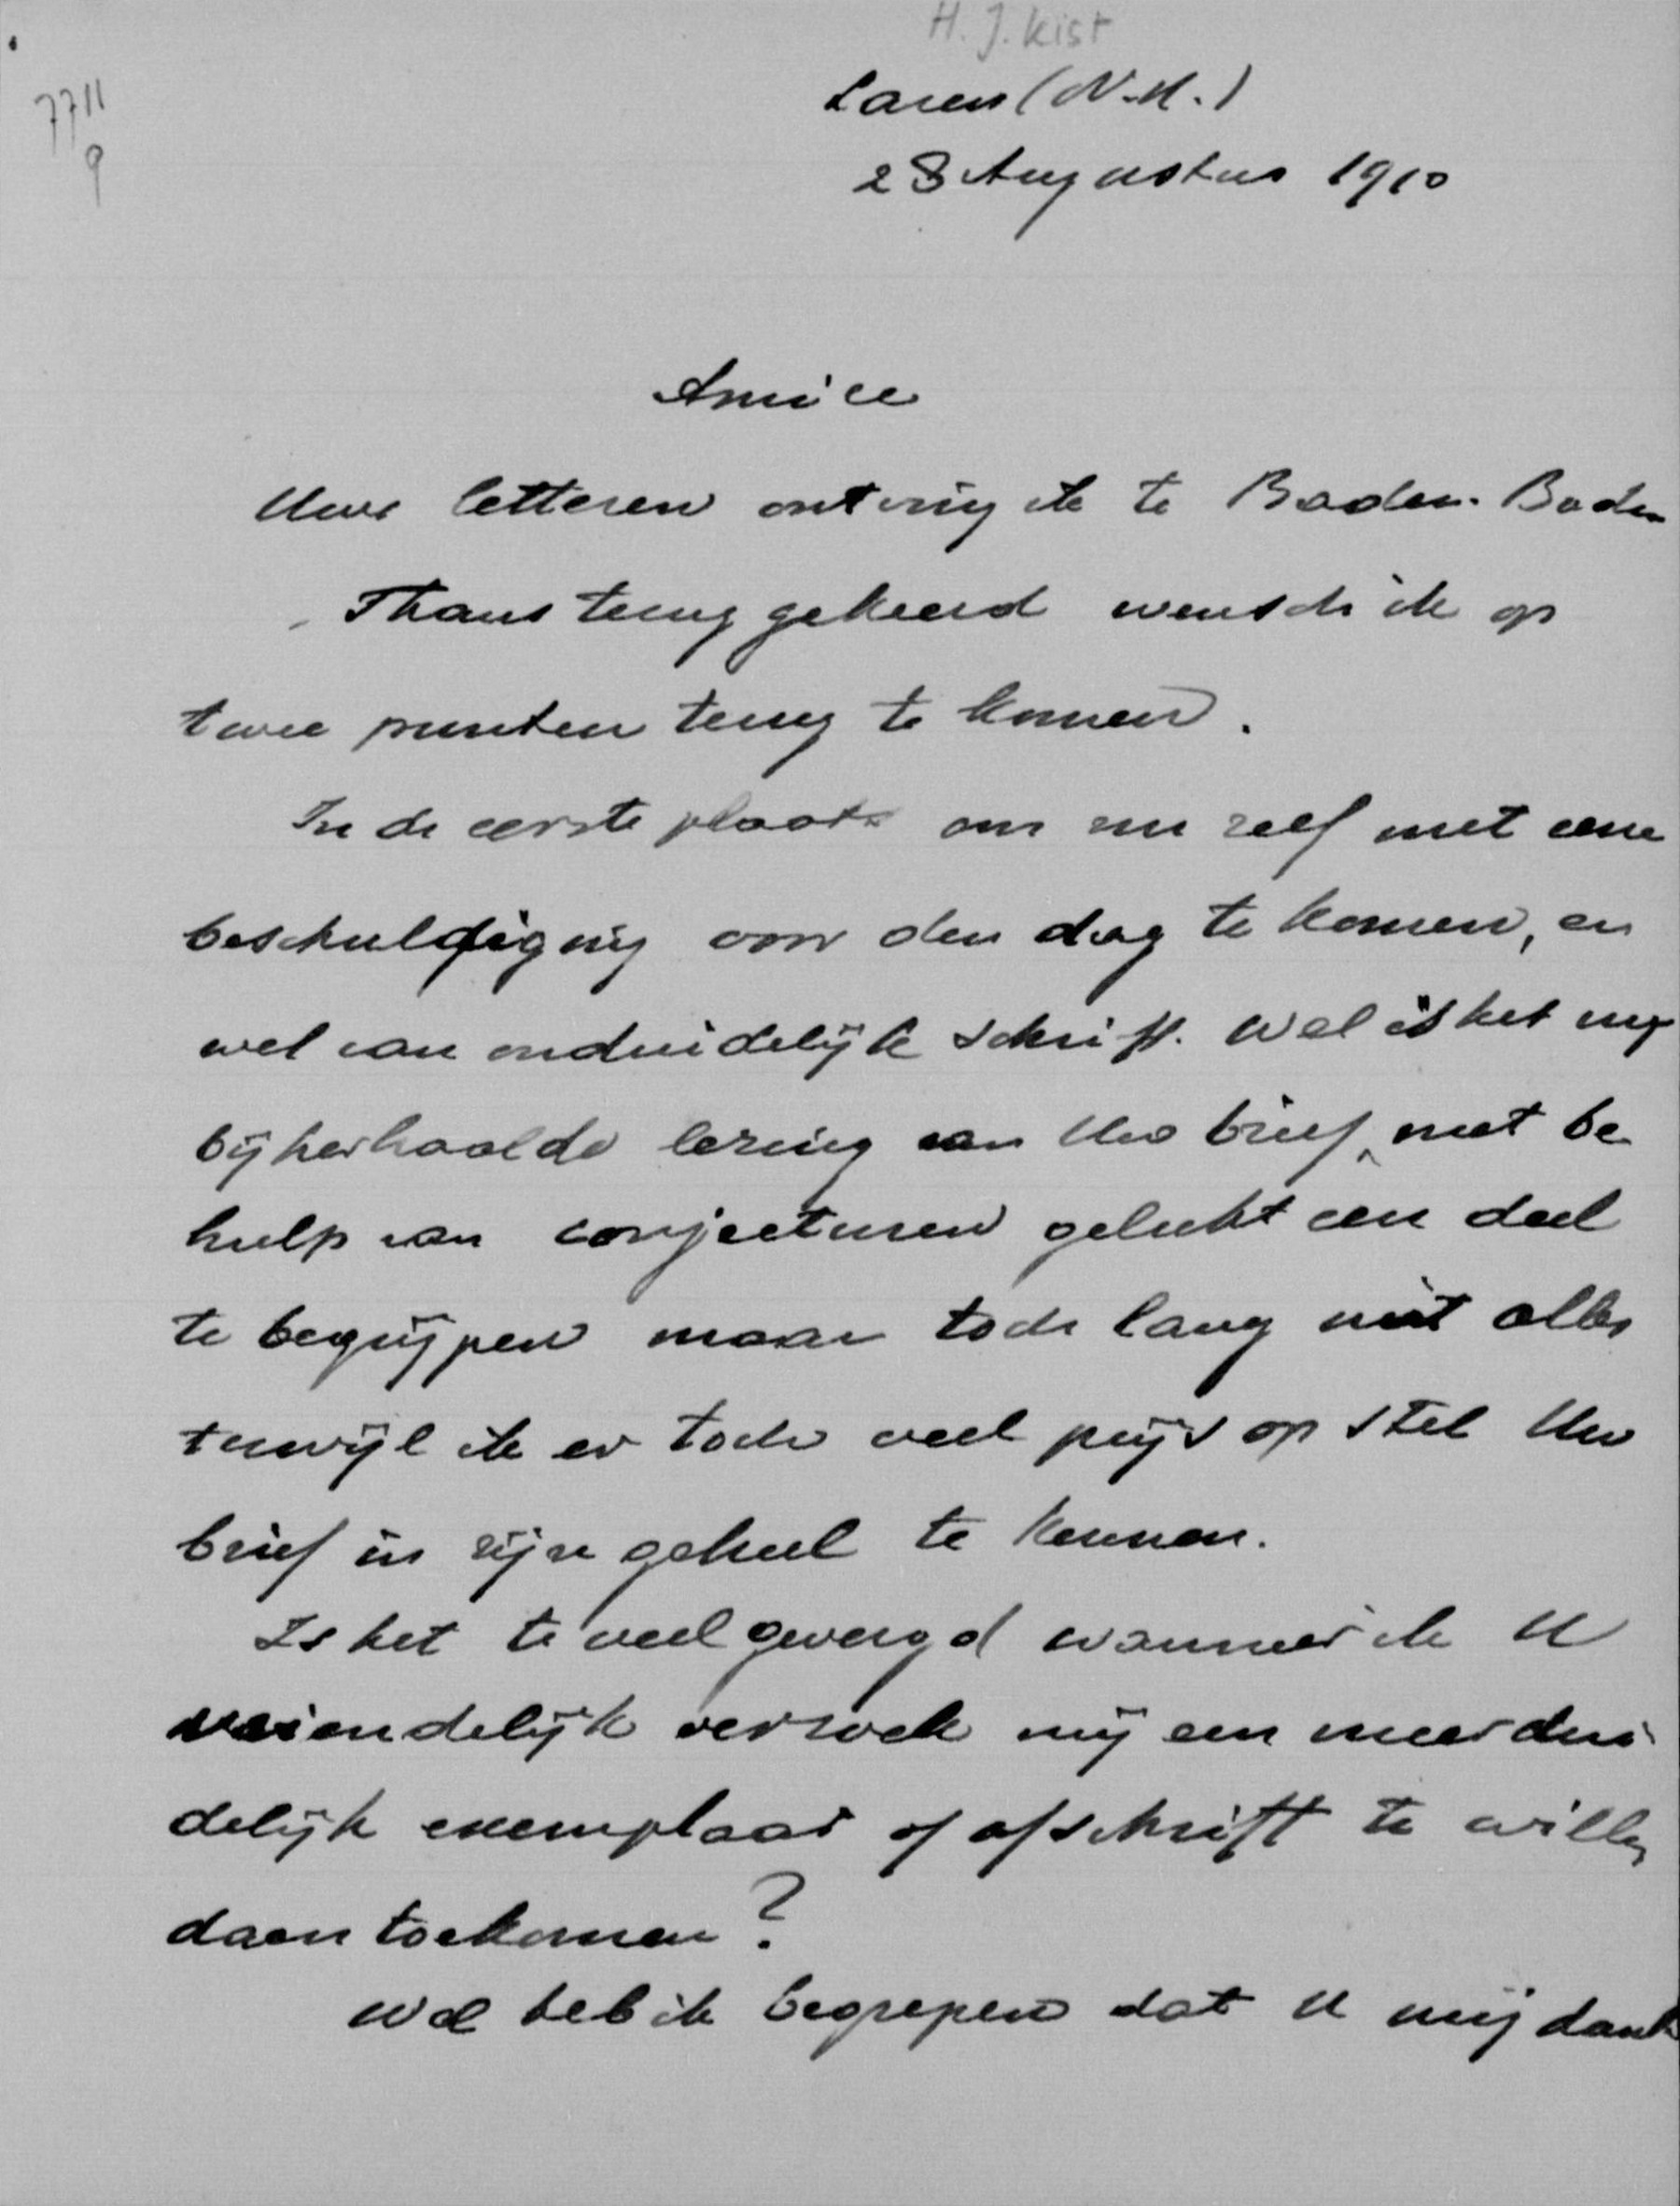 H. J. Kist
7711
9
Laren (N.H.)
28 Augustus 1910
Amice
Uwe letteren ontving ik te Baden-Baden
Thans teruggekeerd wensch ik op
twee punten terug te komen.
In de eerste plaats om nu zelf met eene
beschuldiging voor den dag te komen, en
wel van onduidelijk schrift. Wel is het mij
bij herhaalde lezing van Uw brief, met be
hulp van conjecturen gelukt een deel
te begrijpen maar toch lang niet alles
terwijl ik er toch veel prijs op stel Uw
brief in zijn geheel te kennen.
Is het te veel gevergd wanneer ik U
vriendelijk verzoek mij een meer dui
delijk exemplaar of afschrift te willen
doen toekomen?
Wel heb ik begrepen dat U mij dank